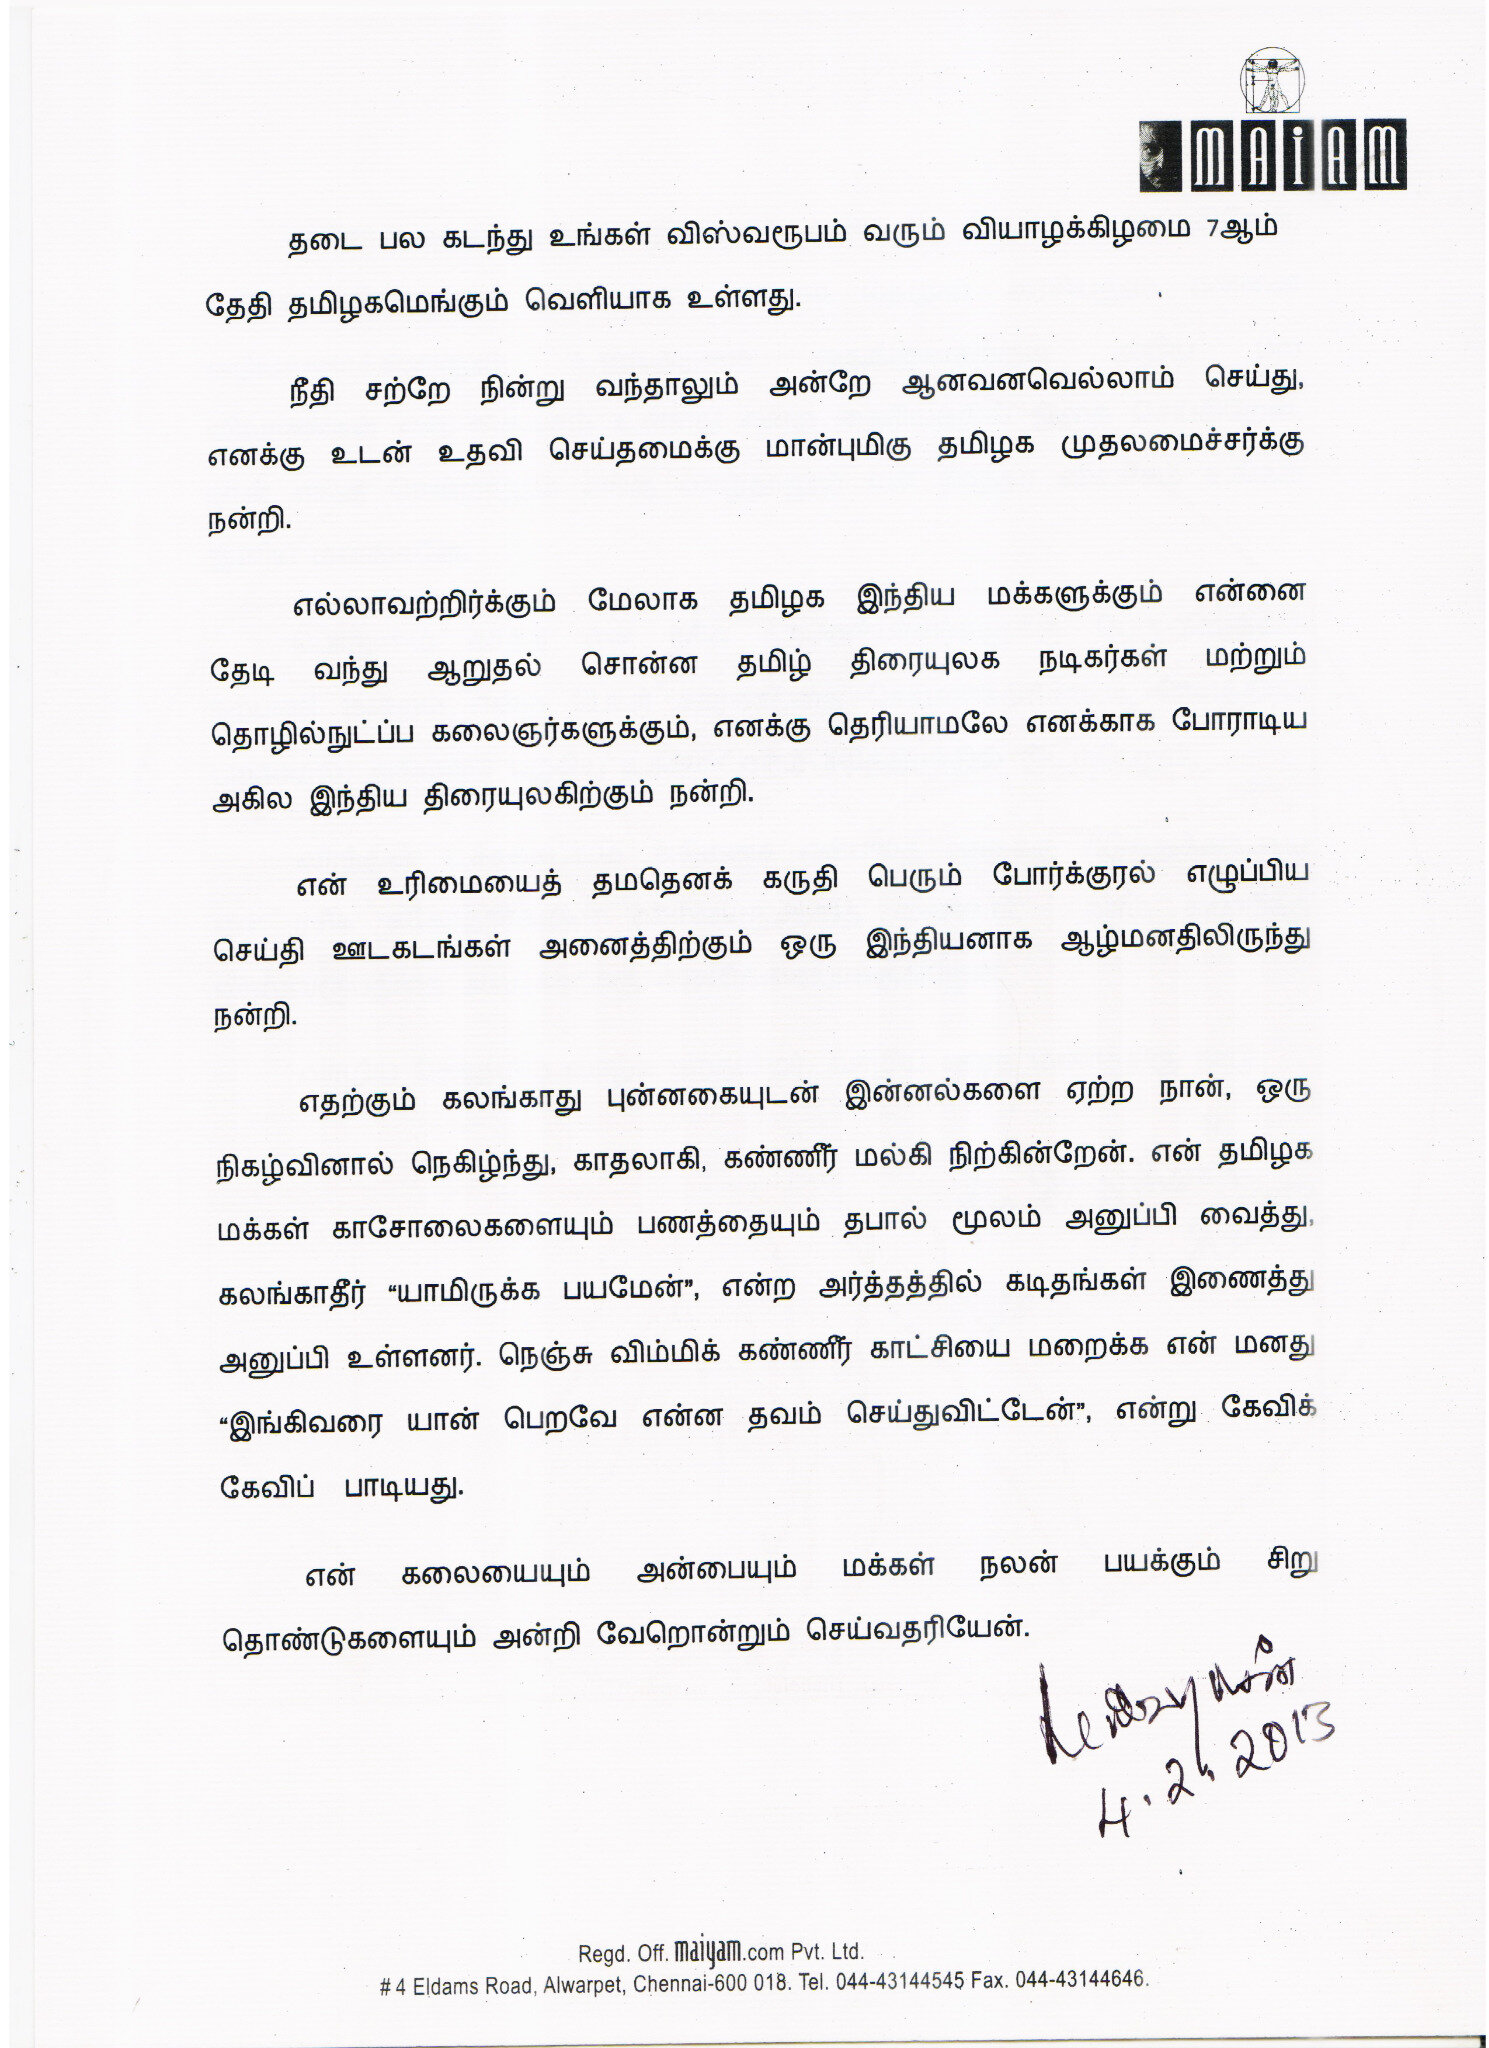 MAIAM
தடை பல கடந்து உங்கள் விஸ்வரூபம் வரும் வியாழக்கிழமை 7ஆம்
தேதி தமிழகமெங்கும் வெளியாக உள்ளது.
நீதி சற்றே நின்று வந்தாலும் அன்றே ஆனவனவெல்லாம் செய்து,
எனக்கு உடன் உதவி செய்தமைக்கு மான்புமிகு தமிழக முதலமைச்சர்க்கு
நன்றி.
எல்லாவற்றிர்க்கும் மேலாக தமிழக இந்திய மக்களுக்கும் என்னை
தேடி வந்து ஆறுதல் சொன்ன தமிழ் திரையுலக நடிகர்கள் மற்றும்
தொழில்நுட்ப்ப கலைஞர்களுக்கும், எனக்கு தெரியாமலே எனக்காக போராடிய
அகில இந்திய திரையுலகிற்கும் நன்றி.
என் உரிமையைத் தமதெனக் கருதி பெரும் போர்க்குரல் எழுப்பிய
செய்தி ஊடகடங்கள் அனைத்திற்கும் ஒரு இந்தியனாக ஆழ்மனதிலிருந்து
நன்றி.
எதற்கும் கலங்காது புன்னகையுடன் இன்னல்களை ஏற்ற நான், ஒரு
நிகழ்வினால் நெகிழ்ந்து, காதலாகி, கண்ணீர் மல்கி நிற்கின்றேன். என் தமிழக
மக்கள் காசோலைகளையும் பணத்தையும் தபால் மூலம் அனுப்பி வைத்து,
கலங்காதீர் “யாமிருக்க பயமேன்”, என்ற அர்த்தத்தில் கடிதங்கள் இணைத்து
அனுப்பி உள்ளனர். நெஞ்சு விம்மிக் கண்ணீர் காட்சியை மறைக்க என் மனது
“இங்கிவரை யான் பெறவே என்ன தவம் செய்துவிட்டேன்”, என்று கேவிக்
கேவிப் பாடியது.
என் கலையையும் அன்பையும் மக்கள் நலன் பயக்கும் சிறு
தொண்டுகளையும் அன்றி வேறொன்றும் செய்வதரியேன்.
4.2.2013
Regd. Off. maiyam.com Pvt. Ltd.
# 4 Eldams Road, Alwarpet, Chennai-600 018. Tel. 044-43144545 Fax. 044-43144646.